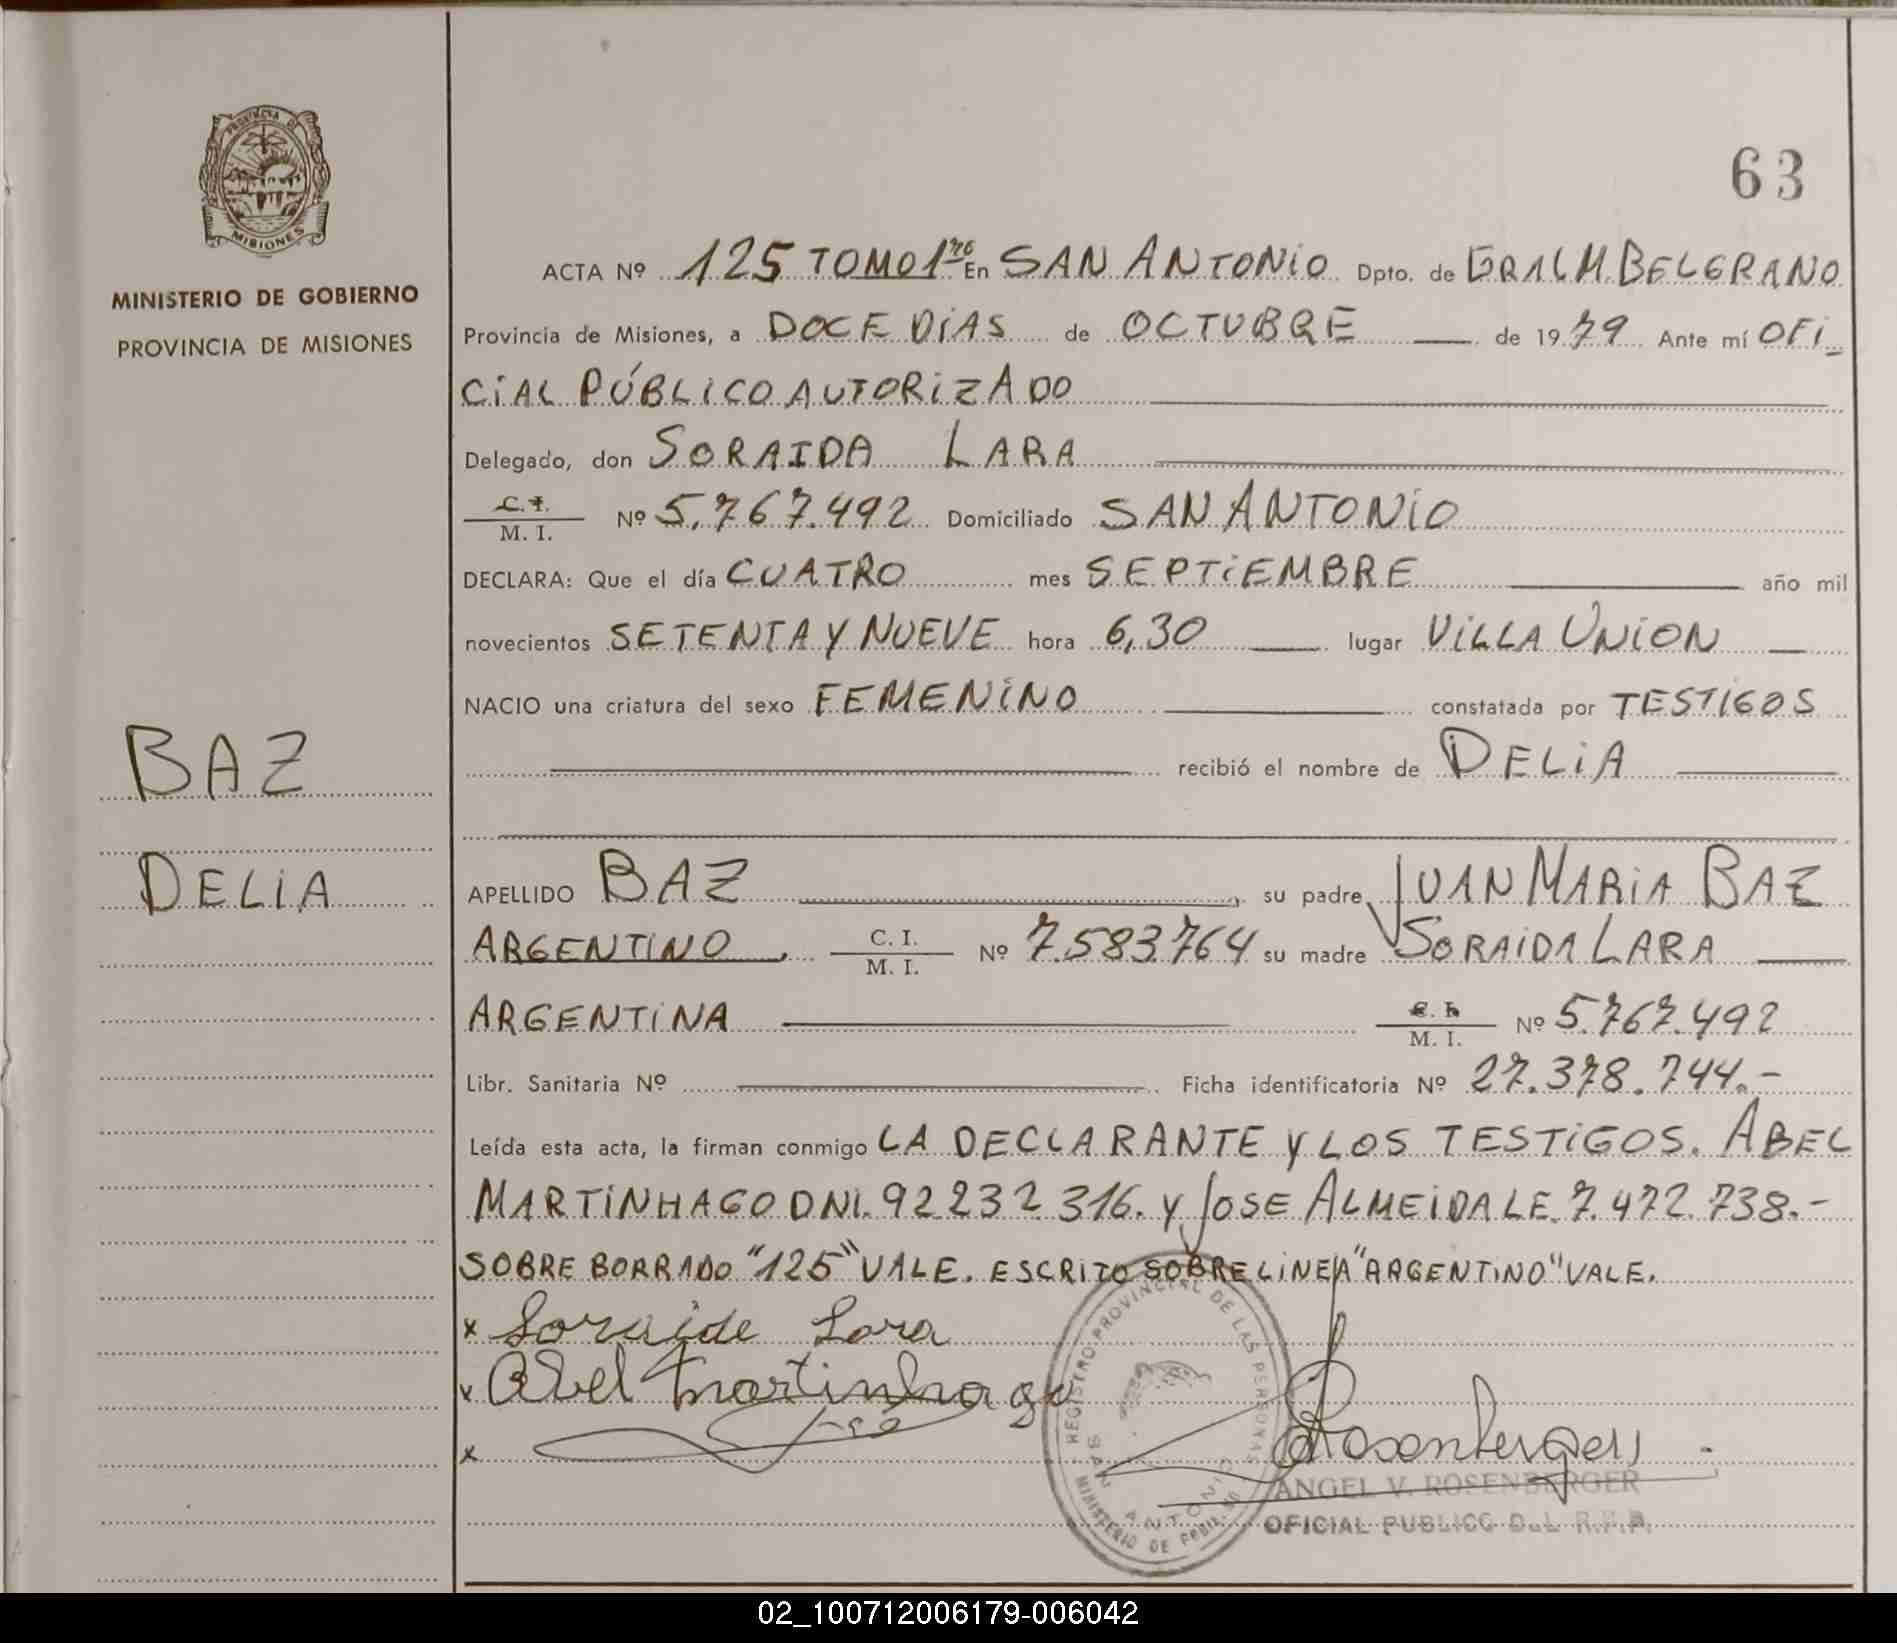 63
PROVINCIA DE
MISIONES
MINISTERIO DE GOBIERNO
PROVINCIA DE MISIONES
BAZ
DELIA
ACTA Nº 125 TOMO 1ro En SAN ANTONIO Dpto. de GRAL M. BELGRANO
Provincia de Misiones, a DOCE DIAS de OCTUBRE de 1979 Ante mí OFI-
CIAL PÚBLICO AUTORIZADO
Delegado, don SORAIDA LARA
C.I.
M. I. Nº 5.767.492 Domiciliado SAN ANTONIO
DECLARA: Que el día CUATRO mes SEPTIEMBRE año mil
novecientos SETENTA Y NUEVE hora 6,30 lugar VILLA UNION
NACIO una criatura del sexo FEMENINO constatada por TESTIGOS
recibió el nombre de DELIA
APELLIDO BAZ, su padre JUAN MARIA BAZ
ARGENTINO, C. I.
M. I. Nº 7.583.764 su madre SORAIDA LARA
ARGENTINA C. I.
M. I. Nº 5.767.492
Libr. Sanitaria Nº Ficha identificatoria Nº 27.378.744.-
Leída esta acta, la firman conmigo LA DECLARANTE Y LOS TESTIGOS. ABEL
MARTINHAGO DNI. 92232316. Y JOSE ALMEIDA LE. 7.472.738.-
SOBRE BORRADO "125" VALE. ESCRITO SOBRE LINEA "ARGENTINO" VALE.
x Soraide Lara
x Abel Martinhago
x
Rosenberger
ANGEL V. ROSENBERGER
OFICIAL PUBLICO D.L R.P.P.
REGISTRO PROVINCIAL DE LAS PERSONAS
SAN ANTONIO
MINISTERIO DE
02_100712006179-006042